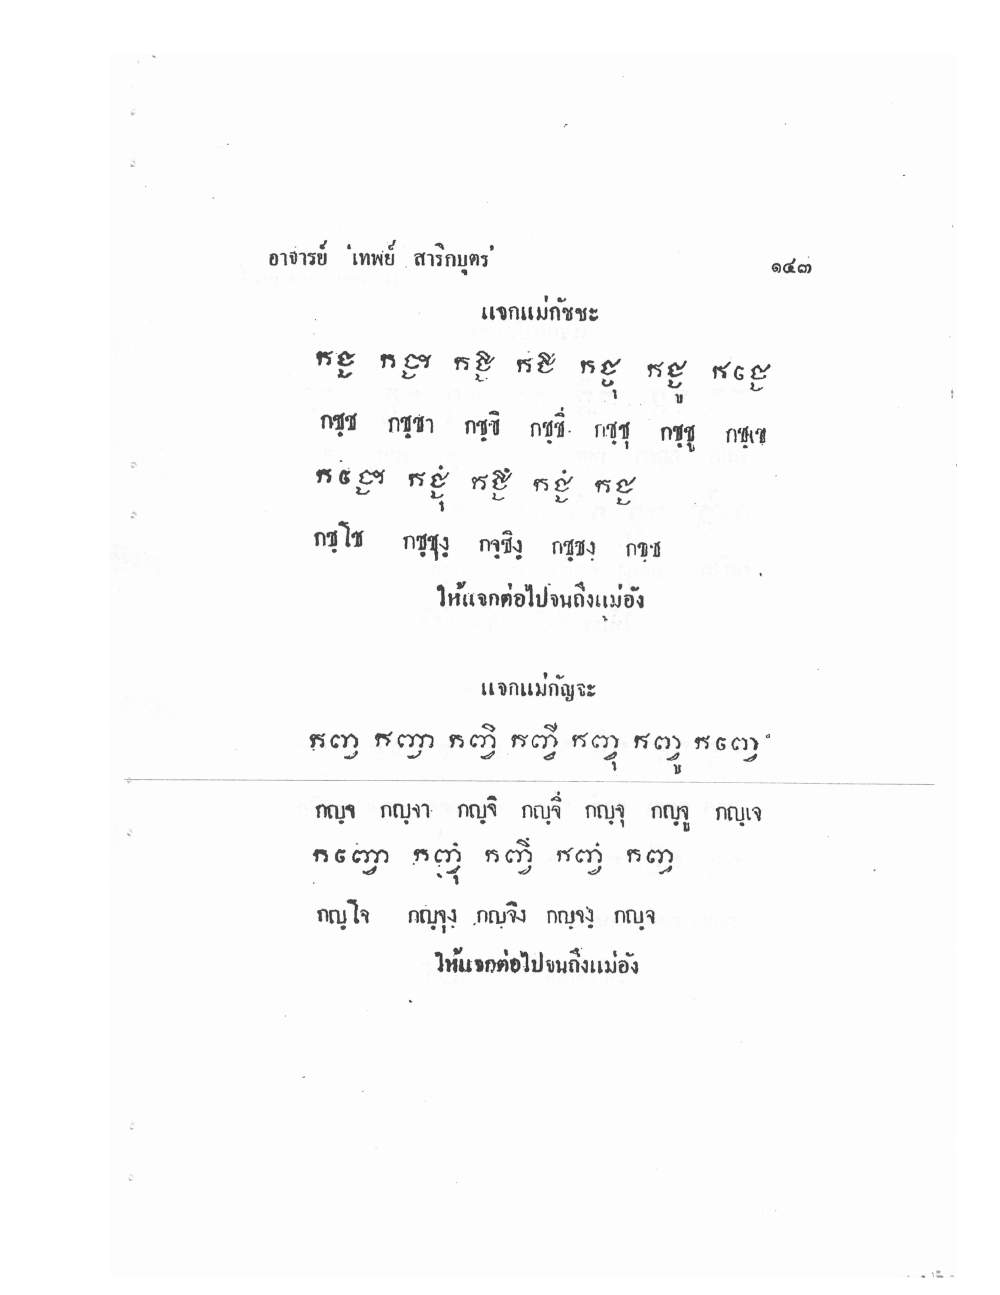 อาจารย์ "เทพย์ สาริกบุตร"
๑๔๓
แจกแม่กัชชะ
កជ្ជ កជ្ជា កជ្ជិ កជ្ជី កជ្ជុ កជ្ជូ កជ្ជេ
กชฺช กชฺชา กชฺชิ กชฺชี่ กชฺชุ กชฺชู กชฺเช
កជ្ជោ កជ្ជុំ កជ្ជិំ កជ្ជំ កជ្ជ
กชฺโช กชฺชุงฺ กจฺชิงฺ กชฺชงฺ กชฺช
ให้แจกต่อไปจนถึงแม่อัง
แจกแม่กัญจะ
កញ្ច កញ្ចា កញ្ចិ កញ្ចី កញ្ចុ កញ្ចូ កញ្ចេ
กญฺจ กญฺจา กญฺจิ กญฺจี่ กญฺจุ กญฺจู กญฺเจ
កញ្ចោ កញ្ចុំ កញ្ចិំ កញ្ចំ កញ្ច
กญฺโจ กญฺจุงฺ กญฺจิง กญฺจงฺ กญฺจ
ให้แจกต่อไปจนถึงแม่อัง